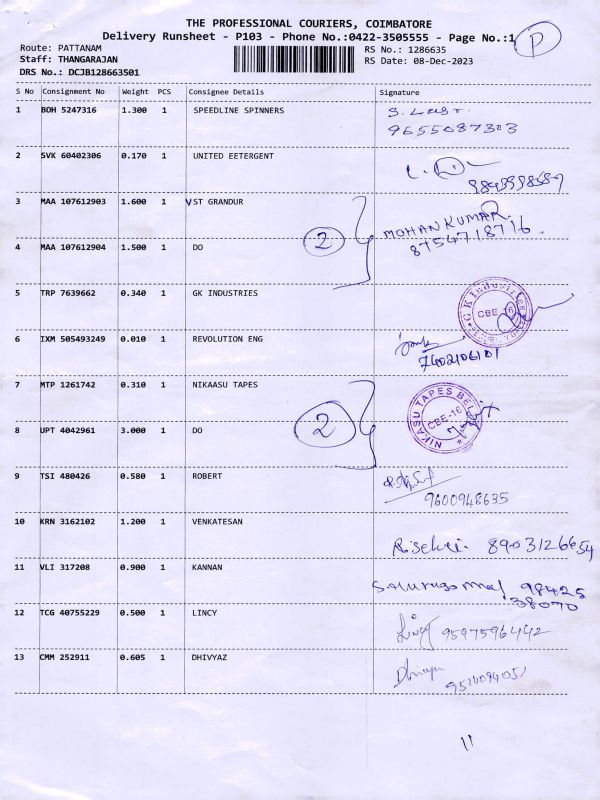 THE PROFESSIONAL COURIERS, COIMBATORE
Delivery Runsheet - P103 - Phone No.:0422-3505555 - Page No.:1
P
Route: PATTANAM
RS No.: 1286635
Staff: THANGARAJAN
RS Date: 08-Dec-2023
DRS No.: DCJB128663501
S No Consignment No Weight PCS Consignee Details Signature
1 BOH 5247316 1.300 1 SPEEDLINE SPINNERS
9655087303
2 SVK 60402306 0.170 1 UNITED EETERGENT
3 MAA 107612903 1.600 1 VST GRANDUR
2
MOHAN KUMAR.
8754718716.
4 MAA 107612904 1.500 1 DO
5 TRP 7639662 0.340 1 GK INDUSTRIES
G K Industries
CBE-16
6 IXM 505493249 0.010 1 REVOLUTION ENG
7402106101
7 MTP 1261742 0.310 1 NIKAASU TAPES
2
NIKASU TAPES BELT
CBE-16
8 UPT 4042961 3.000 1 DO
9 TSI 480426 0.580 1 ROBERT
9600948635
10 KRN 3162102 1.200 1 VENKATESAN
8903126654
11 VLI 317208 0.900 1 KANNAN
98425
38070
12 TCG 40755229 0.500 1 LINCY
Lincy 9597596442
13 CMM 252911 0.605 1 DHIVYAZ
Dhivya
11